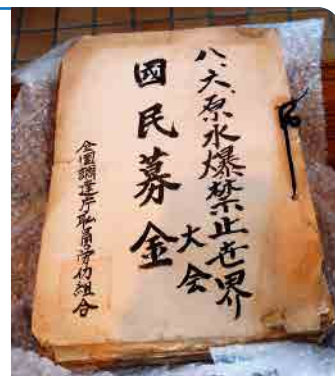 八、六、原水爆禁止世界
大会
國民募金
全国調達庁職員労仂組合